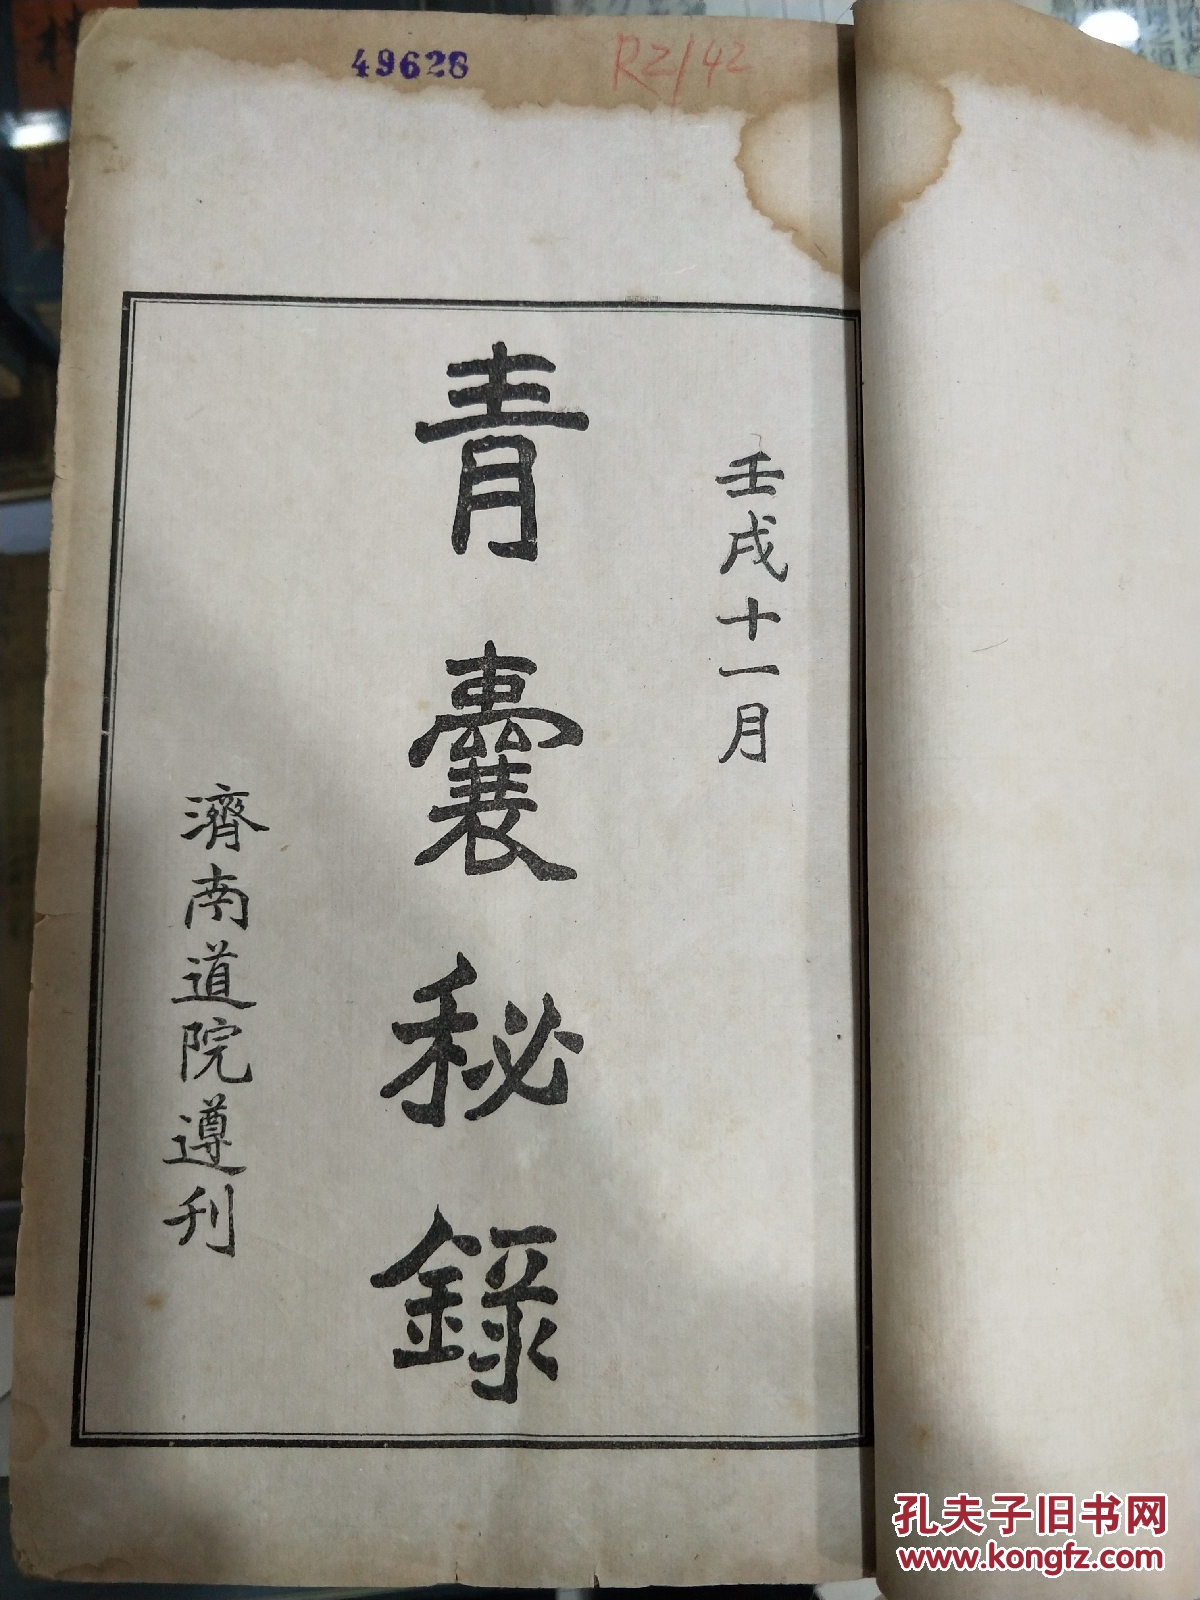 49628
RZ/42
壬戌十一月
青囊秘錄
濟南道院遵刊
孔夫子旧书网
www.kongfz.com